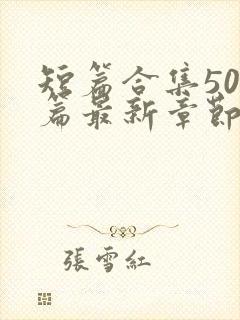 短篇合集50
篇最新章節
張雪紅